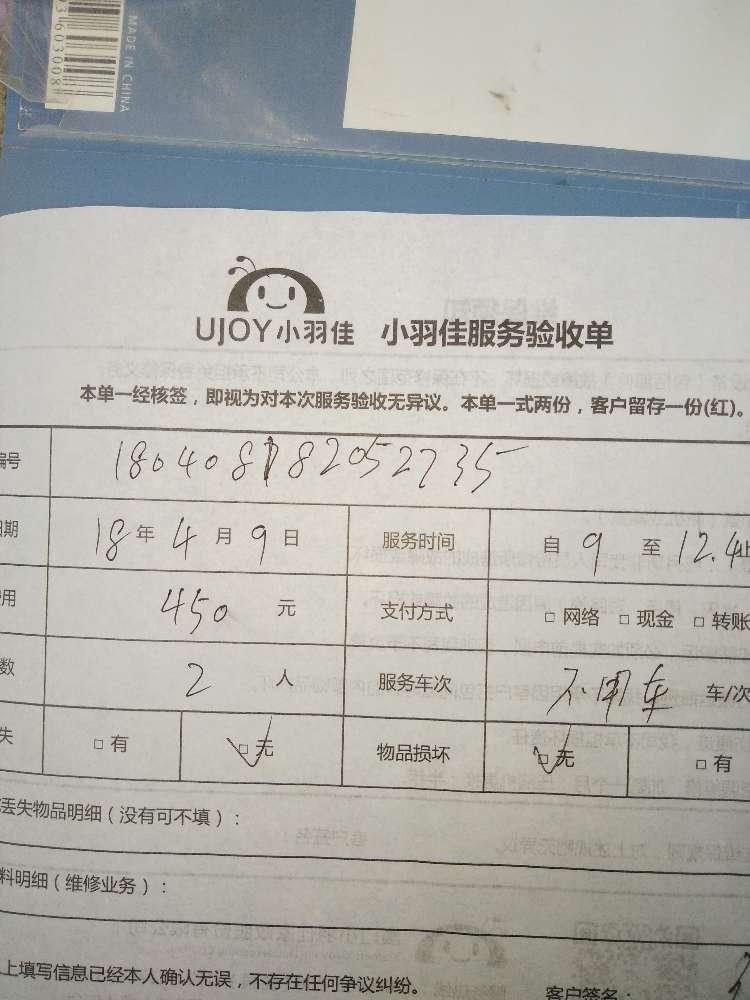 MADE IN CHINA
UJOY小羽佳 小羽佳服务验收单
本单一经核签，即视为对本次服务验收无异议。本单一式两份，客户留存一份(红)。
编号 180408182052735
日期 18年4月9日 服务时间 自9至12.4止
费用 450元 支付方式 □网络 □现金 □转账
数 2人 服务车次 不用车 车/次
失 □有 ☑无 物品损坏 ☑无 □有
丢失物品明细（没有可不填）：
料明细（维修业务）：
上填写信息已经本人确认无误，不存在任何争议纠纷。
客户签名：